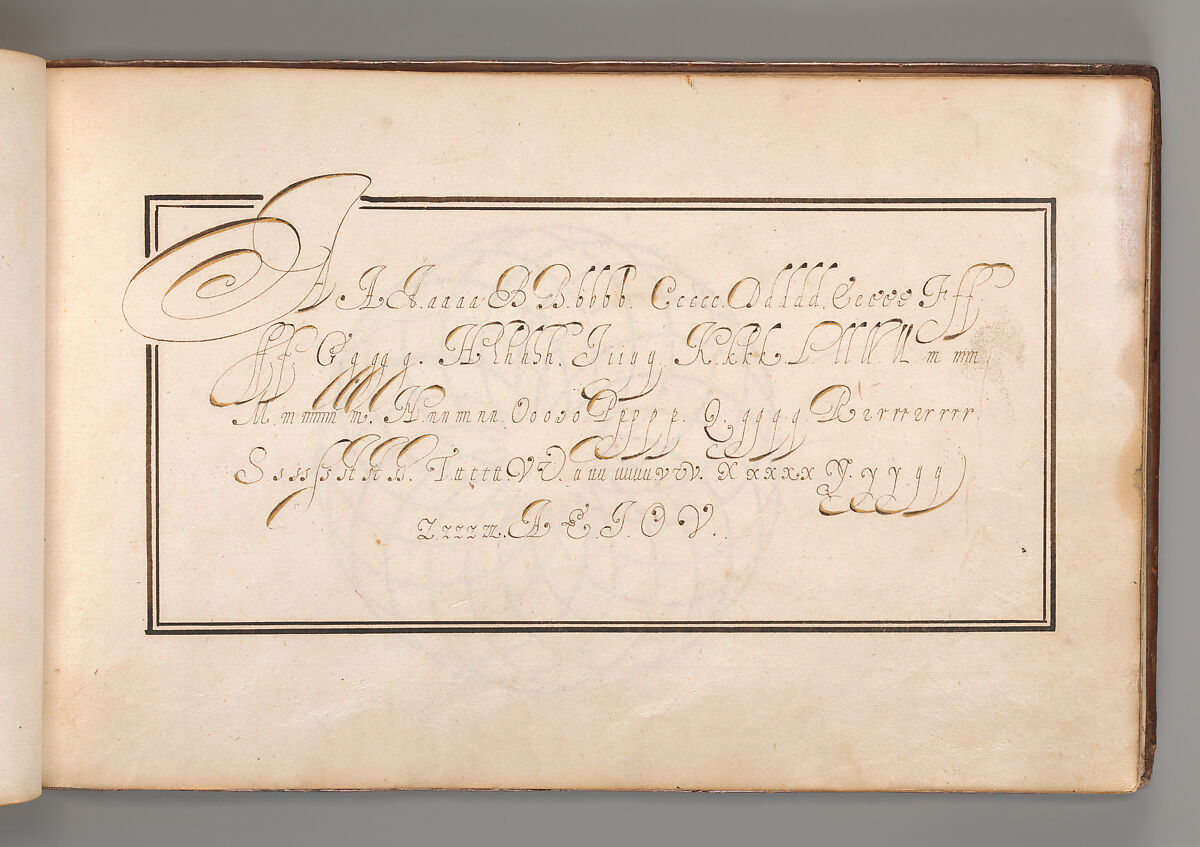 A A A. a a a a B B B. b b b b. C c c c c. D d d d d. E e e e e F f f
f f f G g g g g. H h h h h. I i i y y. K k k k. L l l l l ll m mm
M. m mmm m. N. n n m n n. O o o o o P p p p p. Q. q q q q R r r r r r r r r.
S s s s s st st st. T t t t t. V V. u u u uuuu v v v. X x x x x Y. y y y y
Z. z z z z z. A E. I. O V.